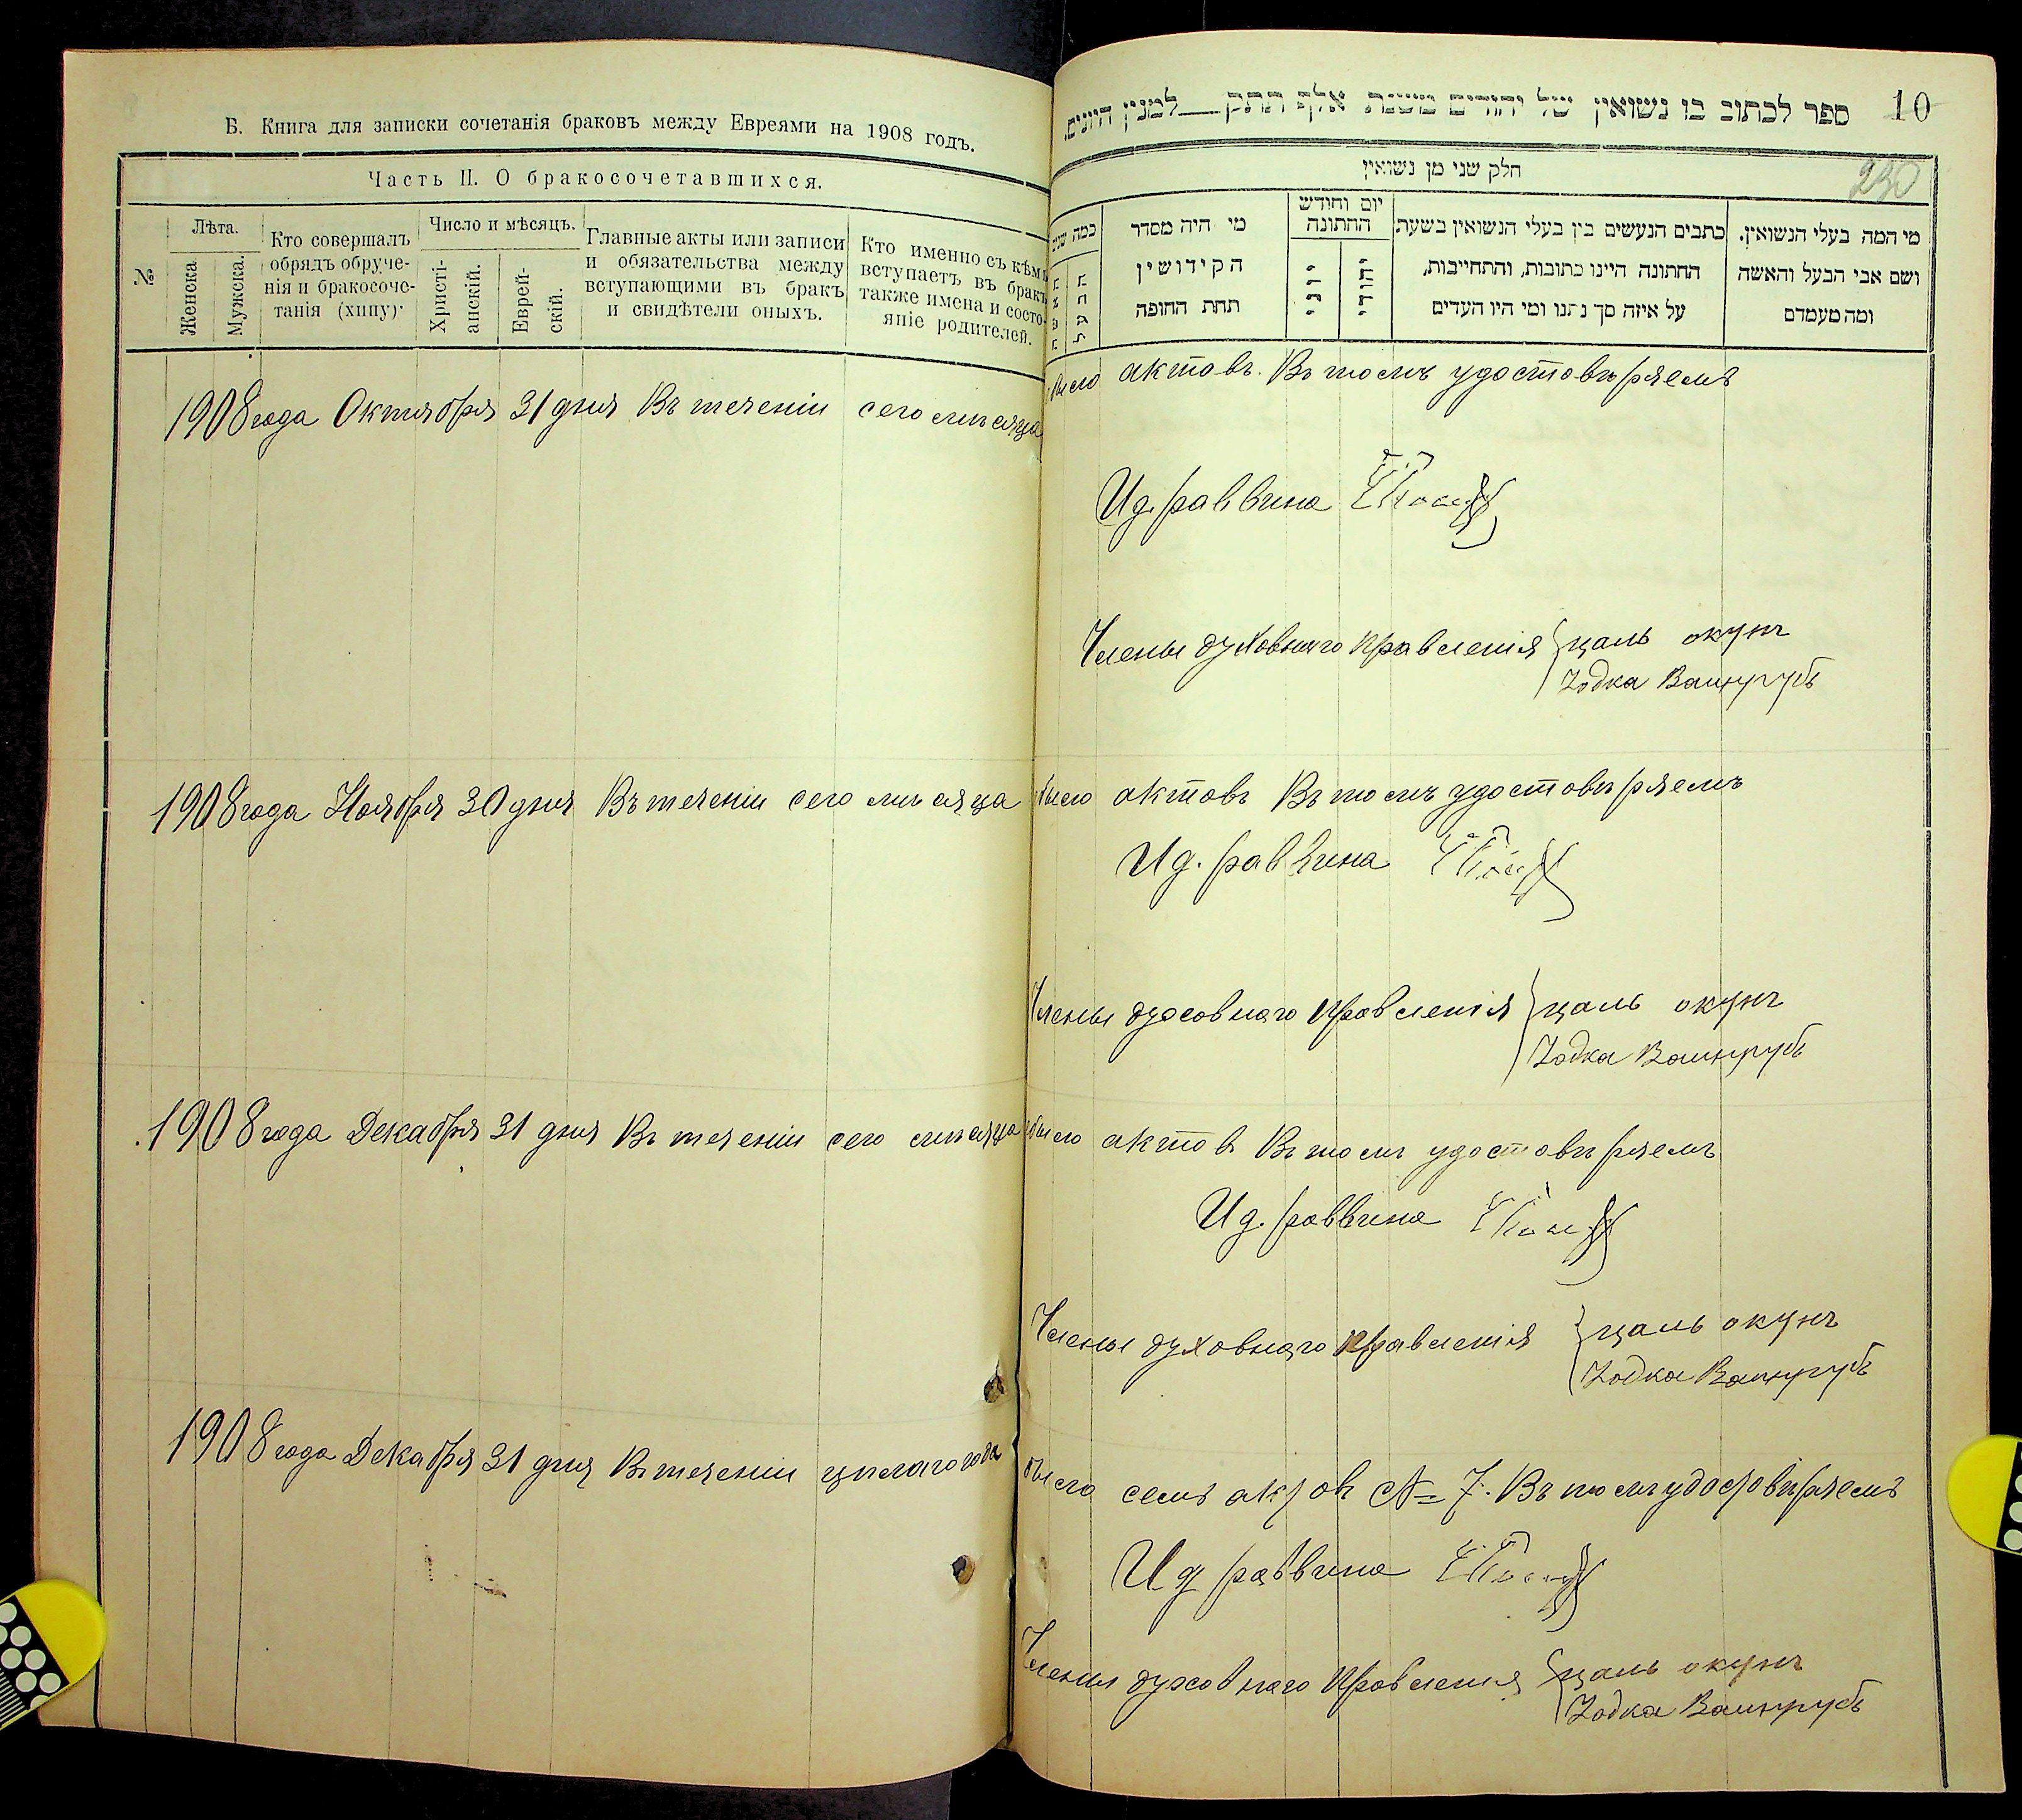 Б. Книга для записки сочетанія браковъ между Евреями на 1908 годъ.
Часть II. О бракосочетавшихся.
№
Лѣта.
Женска
Мужска.
Кто совершалъ
обрядъ обруче-
нія и бракосоче-
танія (хипу)
Число и мѣсяцъ.
Христі-
анскій.
Еврей-
скій.
Главные акты или записи
и обязательства между
вступающими въ бракъ
и свидѣтели оныхъ.
Кто именно съ кѣмъ
вступаетъ въ бракъ
также имена и состо-
яніе родителей.
10
ספר לכתוב בו נשואין של יהודים משנת אלף תתק למנין היונים
230
חלק שני מן נשואין
כמה שנים
האשה
הבעל
מי היה מסדר
הקידושין
תחת החופה
יום וחודש
החתונה
יוני
יהודי
כתבים הנעשים בין בעלי הנשואין בשעת
החתונה היינו כתובות, והתחייבות,
על איזה סך נתנו ומי היו העדים
מי המה בעלי הנשואין.
ושם אבי הבעל והאשה
ומה מעמדם
1908 года Октября 31 дня Въ теченіи сего мѣсяца было актовъ. Въ томъ удостовѣряемъ
И д. раввина
Члены духовнаго правленія цаль окунъ
Іодка
1908 года Ноября 30 дня Въ теченіи сего мѣсяца было актовъ Въ томъ удостовѣряемъ
И д. раввина
Члены духовнаго правленія цаль окунъ
Іодка
1908 года Декабря 31 дня Въ теченіи сего мѣсяца было актовъ Въ томъ удостовѣряемъ
И д. раввина
Члены духовнаго правленія цаль окунъ
Іодка
1908 года Декабря 31 дня Въ теченіи цѣлаго года было семь актовъ № 7. Въ томъ удостовѣряемъ
И д раввина
Члены духовнаго правленія цаль окунъ
Іодка